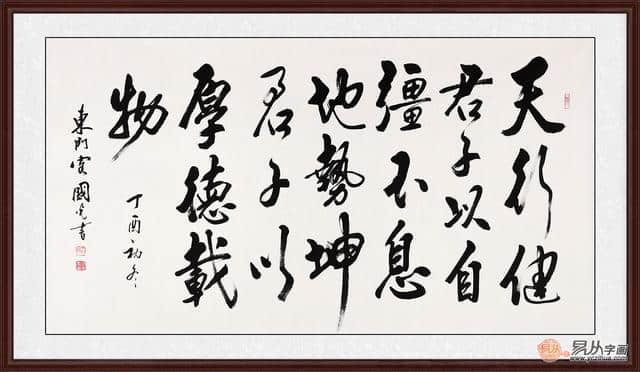 天行健
君子以自
彊不息
地勢坤
君子以
厚德載
物
丁酉初冬
東門國書
易从字画
www.yczihua.com